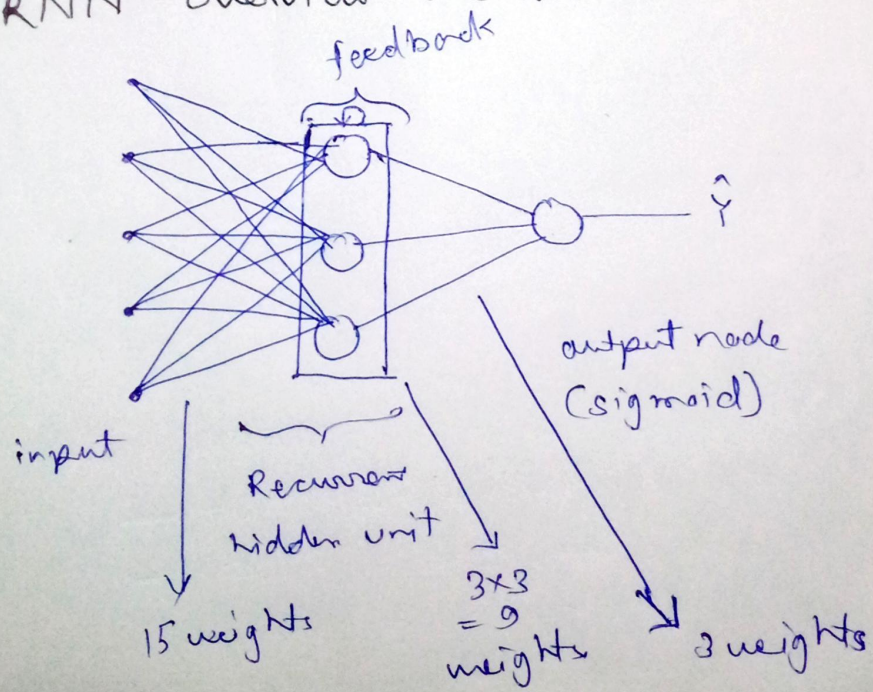 RNN
feedback
Ŷ
output node
(sigmoid)
input
Recurren
hidden unit
15 weights
3×3
= 9
weights
3 weights